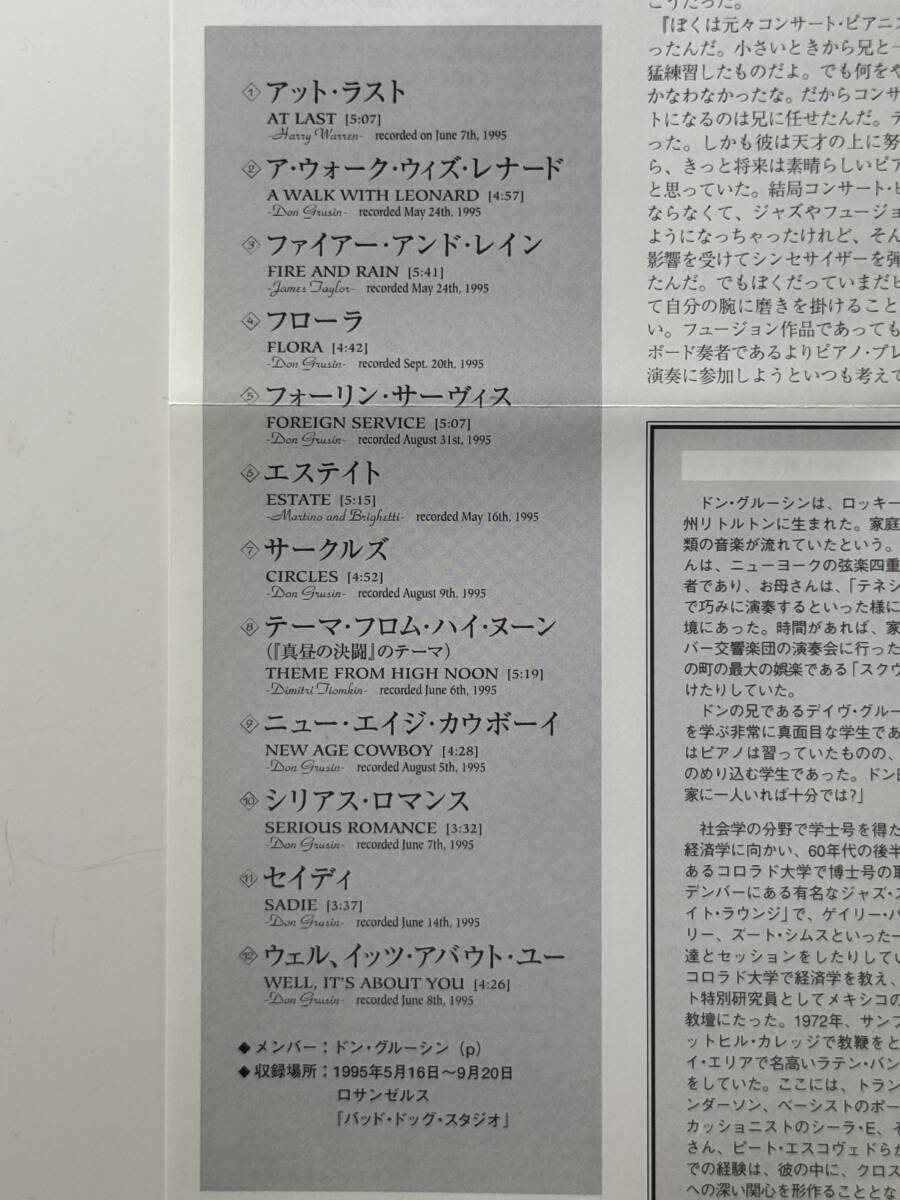 ① アット・ラスト
AT LAST [5:07]
-Harry Warren- recorded on June 7th, 1995
② ア・ウォーク・ウィズ・レナード
A WALK WITH LEONARD [4:57]
-Don Grusin- recorded May 24th, 1995
③ ファイアー・アンド・レイン
FIRE AND RAIN [5:41]
-James Taylor- recorded May 24th, 1995
④ フローラ
FLORA [4:42]
-Don Grusin- recorded Sept. 20th, 1995
⑤ フォーリン・サーヴィス
FOREIGN SERVICE [5:07]
-Don Grusin- recorded August 31st, 1995
⑥ エステイト
ESTATE [5:15]
-Martino and Brighetti- recorded May 16th, 1995
⑦ サークルズ
CIRCLES [4:52]
-Don Grusin- recorded August 9th, 1995
⑧ テーマ・フロム・ハイ・ヌーン
(『真昼の決闘』のテーマ)
THEME FROM HIGH NOON [5:19]
-Dimitri Tiomkin- recorded June 6th, 1995
⑨ ニュー・エイジ・カウボーイ
NEW AGE COWBOY [4:28]
-Don Grusin- recorded August 5th, 1995
⑩ シリアス・ロマンス
SERIOUS ROMANCE [3:32]
-Don Grusin- recorded June 7th, 1995
⑪ セイディ
SADIE [3:37]
-Don Grusin- recorded June 14th, 1995
⑫ ウェル、イッツ・アバウト・ユー
WELL, IT'S ABOUT YOU [4:26]
-Don Grusin- recorded June 8th, 1995
◆メンバー：ドン・グルーシン (p)
◆収録場所：1995年5月16日〜9月20日
ロサンゼルス
『バッド・ドッグ・スタジオ』
こうだった。
『ぼくは元々コンサート・ピアニス
ったんだ。小さいときから兄と一
猛練習したものだよ。でも何をや
かなわなかったな。だからコンサ
トになるのは兄に任せたんだ。デ
った。しかも彼は天才の上に努
ら、きっと将来は素晴らしいピア
と思っていた。結局コンサート・ピ
ならなくて、ジャズやフュージョ
ようになっちゃったけれど、そん
影響を受けてシンセサイザーを弾
たんだ。でもぼくだっていまだピ
て自分の腕に磨きを掛けること
い。フュージョン作品であっても
ボード奏者であるよりピアノ・プレ
演奏に参加しようといつも考えて
ドン・グルーシンは、ロッキー
州リトルトンに生まれた。家庭
類の音楽が流れていたという。
んは、ニューヨークの弦楽四重
者であり、お母さんは、「テネシ
で巧みに演奏するといった様に
境にあった。時間があれば、家
バー交響楽団の演奏会に行った
の町の最大の娯楽である「スクウ
けたりしていた。
ドンの兄であるデイヴ・グルー
を学ぶ非常に真面目な学生であ
はピアノは習っていたものの、
のめり込む学生であった。ドン
家に一人いれば十分では?」
社会学の分野で学士号を得た
経済学に向かい、60年代の後半
あるコロラド大学で博士号の取
デンバーにある有名なジャズ・ス
イト・ラウンジ」で、ゲイリー・バ
リー、ズート・シムスといった一
達とセッションをしたりしてい
コロラド大学で経済学を教え、
ト特別研究員としてメキシコの
教壇にたった。1972年、サンフ
ットヒル・カレッジで教鞭をと
イ・エリアで名高いラテン・バン
をしていた。ここには、トラン
ンダーソン、ベーシストのポー
カッショニストのシーラ・E、そ
さん、ピート・エスコヴェドらが
での経験は、彼の中に、クロス
への深い関心を形作ることとな